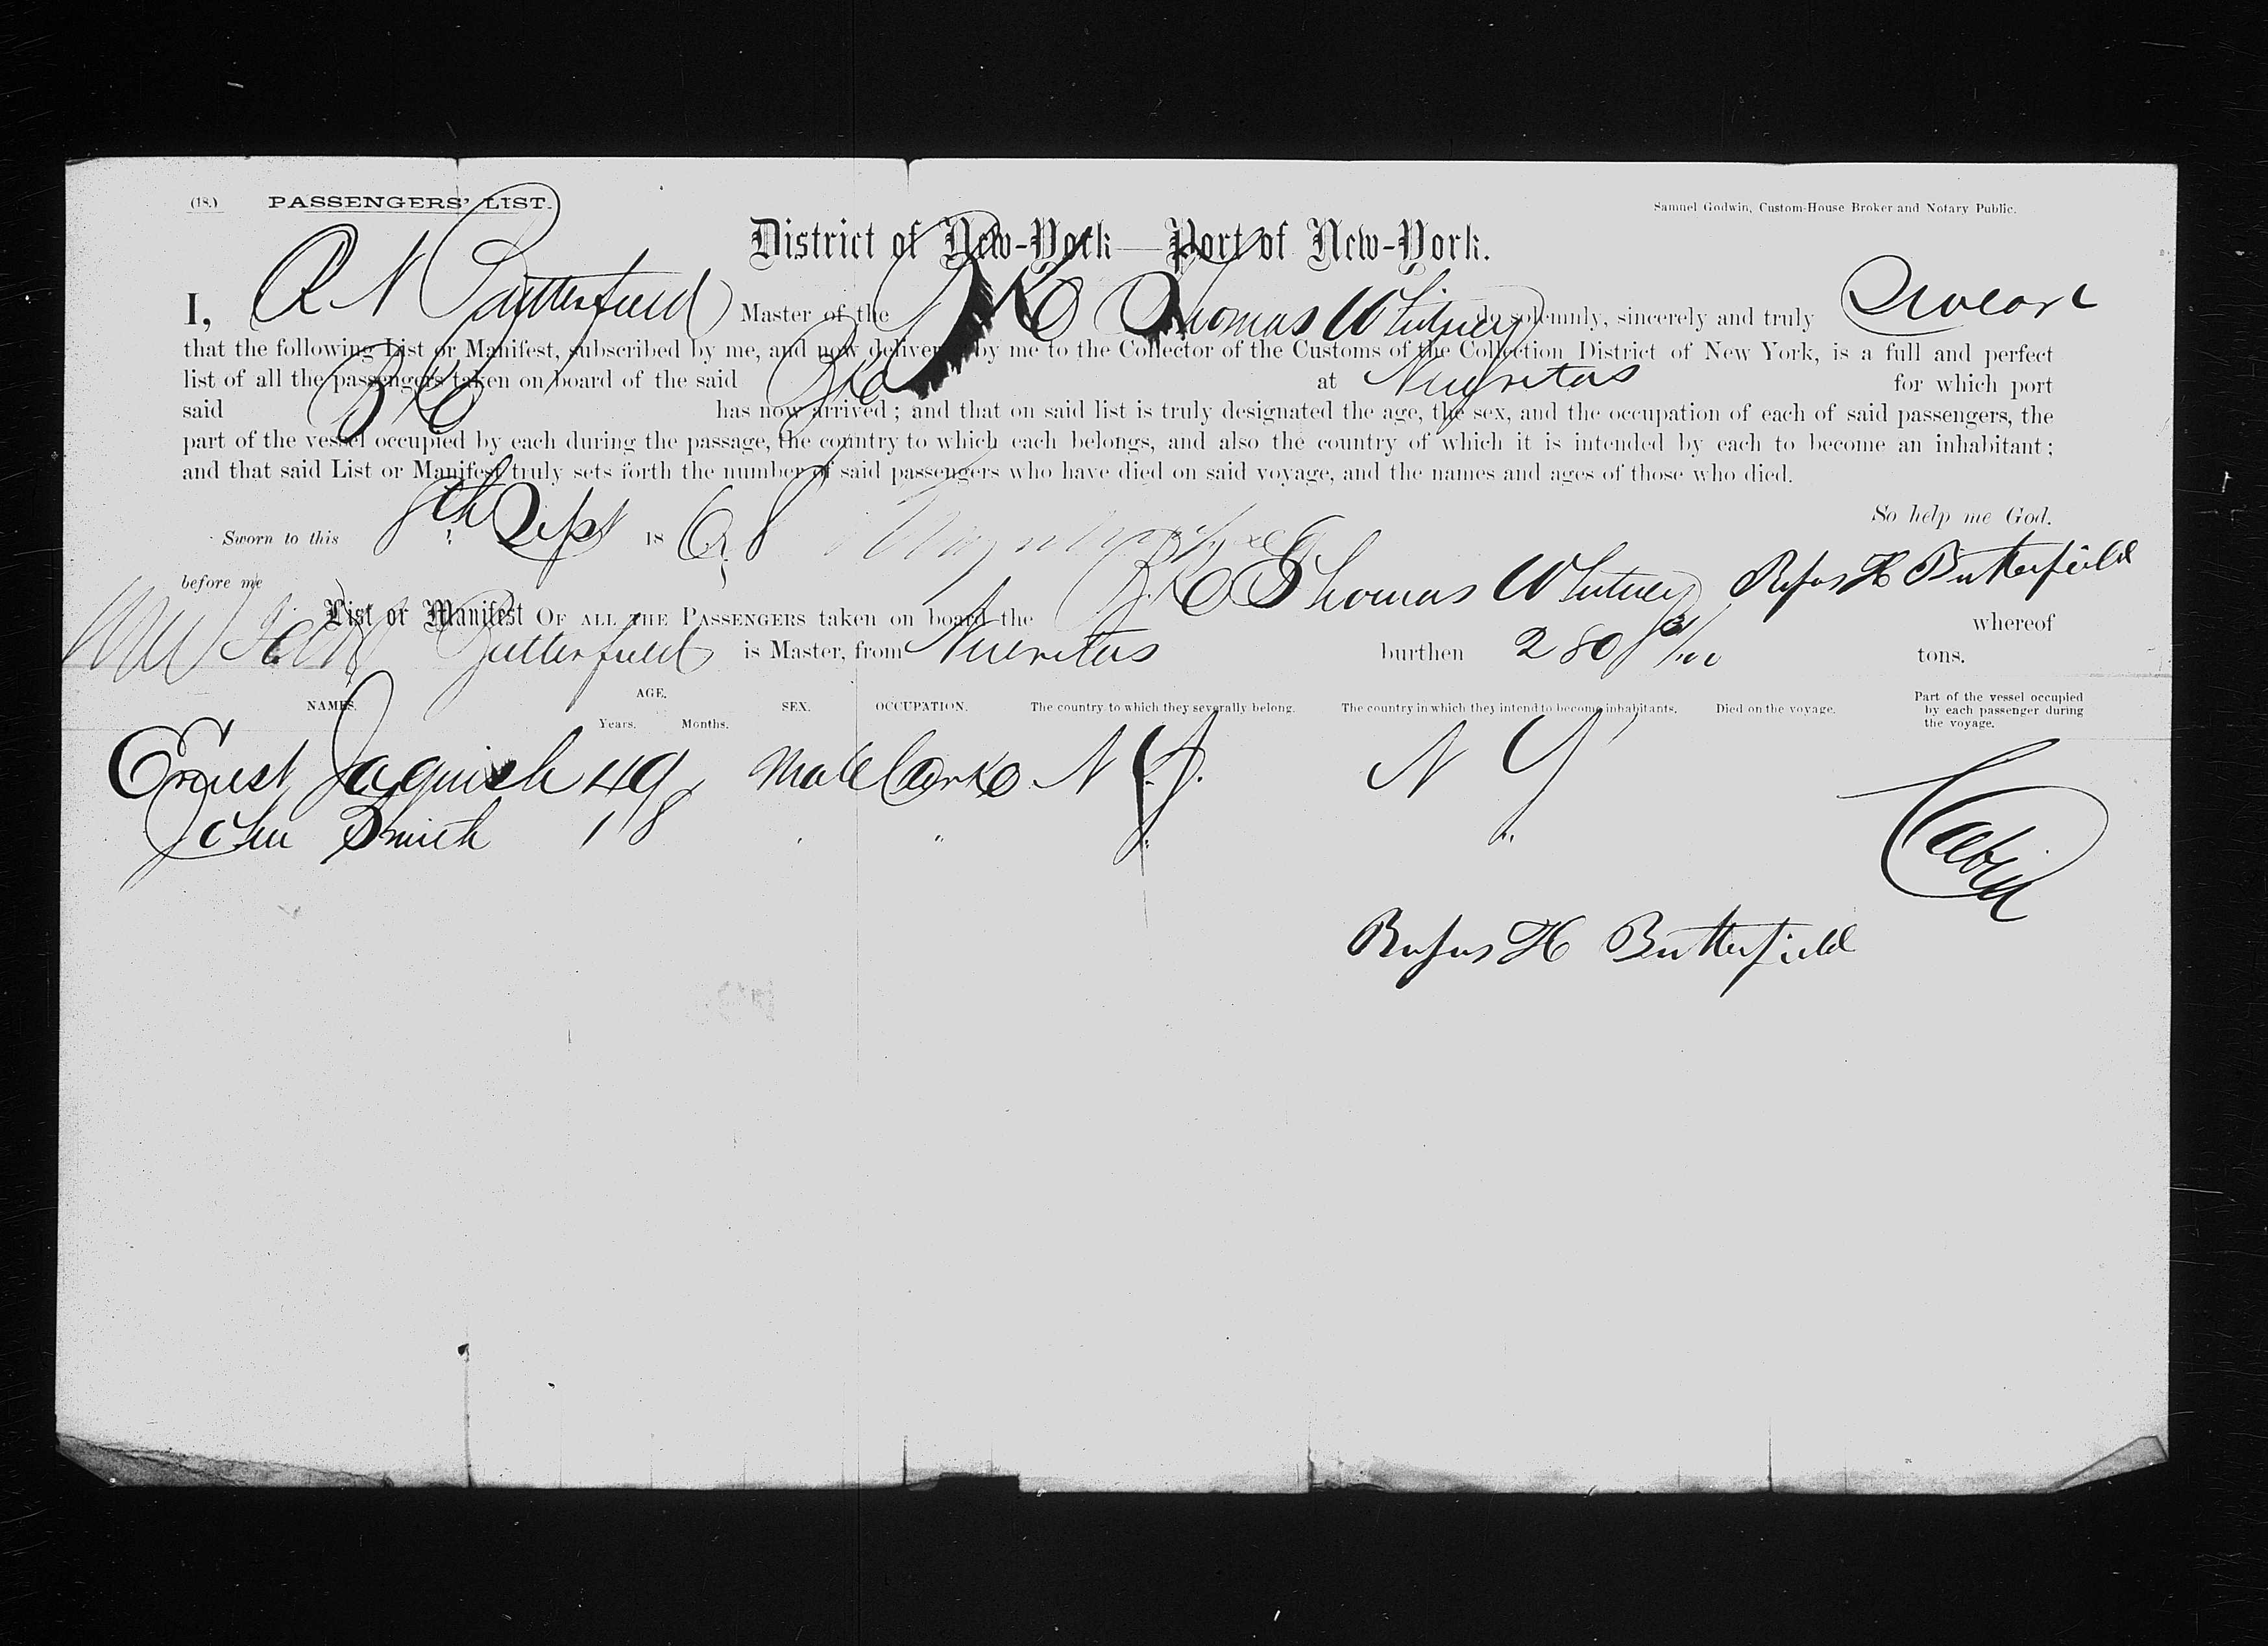 (18.) PASSENGERS' LIST. Samuel Godwin, Custom-House Broker and Notary Public.
District of New-York—Port of New-York.
I, R N Butterfield Master of the Thomas Whitney do solemnly, sincerely and truly Swear
that the following List or Manifest, subscribed by me, and now delivered by me to the Collector of the Customs of the Collection District of New York, is a full and perfect
list of all the passengers taken on board of the said at Nuevitas for which port
said has now arrived; and that on said list is truly designated the age, the sex, and the occupation of each of said passengers, the
part of the vessel occupied by each during the passage, the country to which each belongs, and also the country of which it is intended by each to become an inhabitant;
and that said List or Manifest truly sets forth the number of said passengers who have died on said voyage, and the names and ages of those who died.
So help me God.
Sworn to this 8th Sept 1868
before me Rufus H Butterfield
List or Manifest OF ALL THE PASSENGERS taken on board the Thomas Whitney whereof
Butterfield is Master, from Nuevitas burthen 280 tons.
NAMES. AGE. Years. Months. SEX. OCCUPATION. The country to which they severally belong. The country in which they intend to become inhabitants. Died on the voyage. Part of the vessel occupied by each passenger during the voyage.
Ernest Jaquish 49 Male N Y. N Y Cabin
John Smith 18 " " "
Rufus H Butterfield